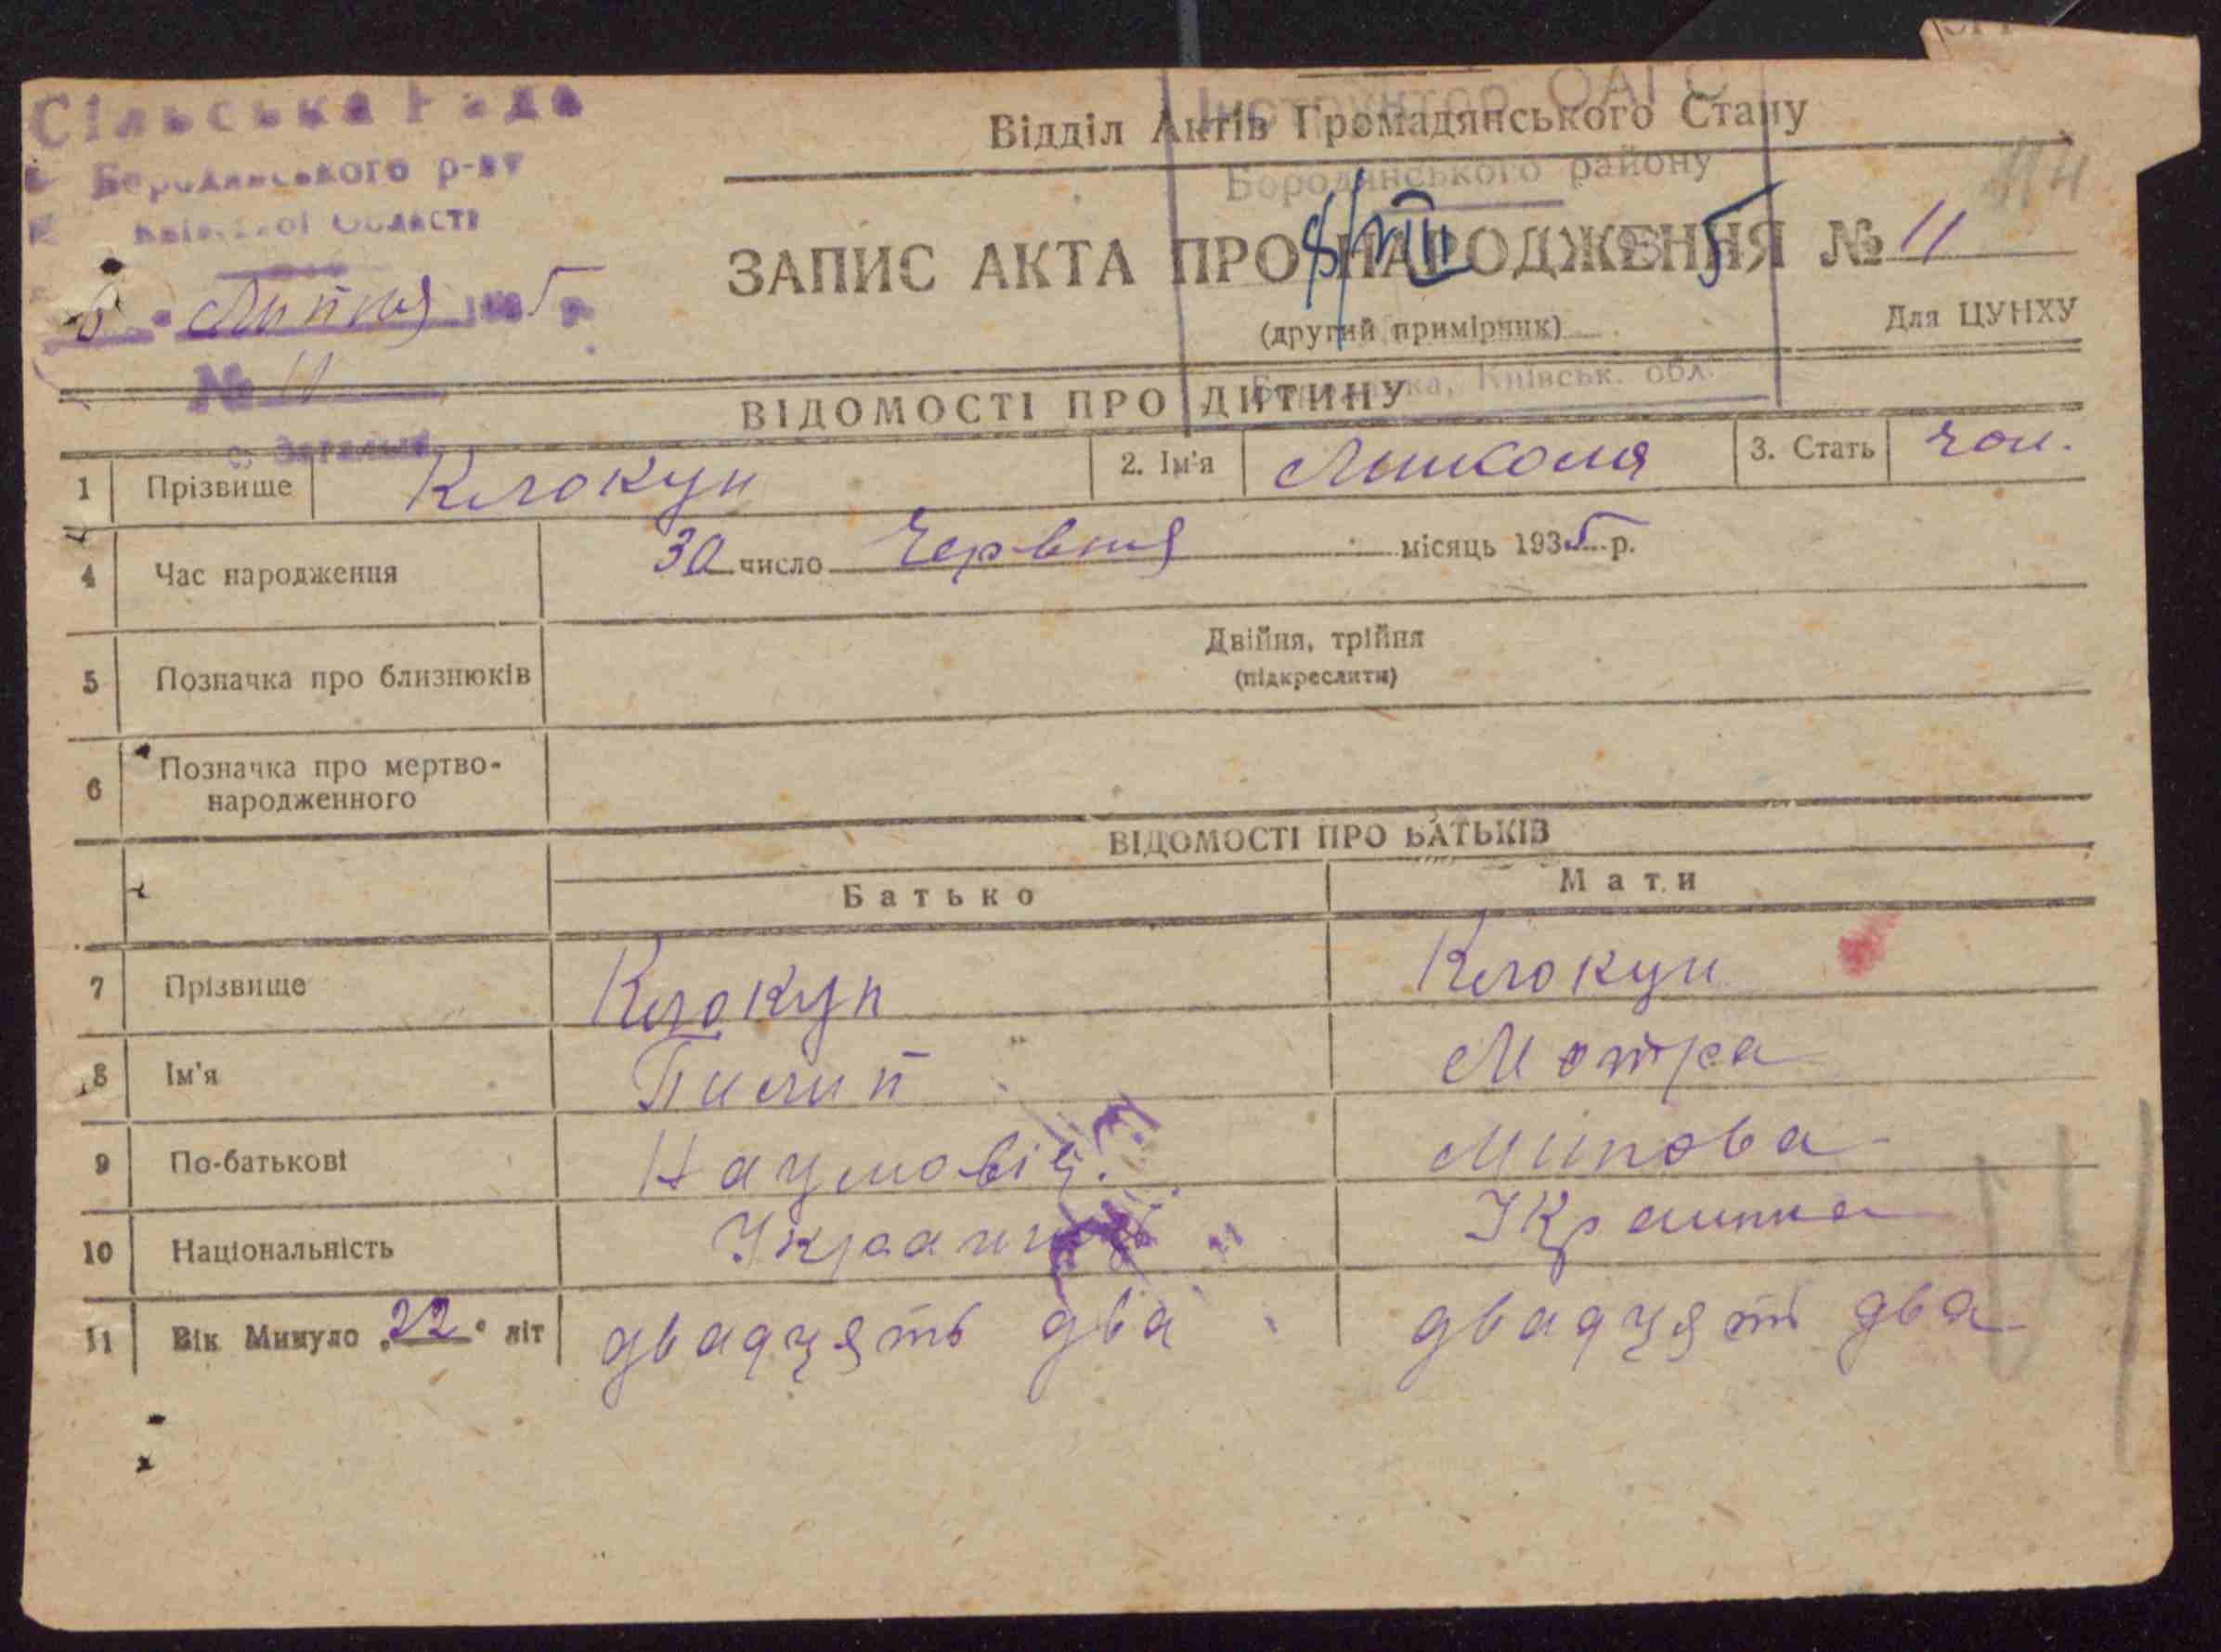 Сільська Рада
Бородянського р-ну
Київської Області
6 " Липня 1935 р.
№ 11
Інструктор
Бородянського району
8/VIII 5
Бородянка, Київськ. обл.
Відділ Актів Громадянського Стану
ЗАПИС АКТА ПРО НАРОДЖЕННЯ № 11
(другий примірник)
Для ЦУНХУ
ВІДОМОСТІ ПРО ДИТИНУ
1 Прізвище Клокун 2. Ім'я Микола 3. Стать чол.
4 Час народження 30 число Червня місяць 1935 р.
5 Позначка про близнюків Двійня, трійня
(підкреслити)
6 Позначка про мертво-
народженного
ВІДОМОСТІ ПРО БАТЬКІВ
Батько Мати
7 Прізвище Клокун Клокун
8 Ім'я Пилип Мотра
9 По-батькові Наумовіч
10 Національність
11 Вік Минуло „22" літ двадцять два двадцять два